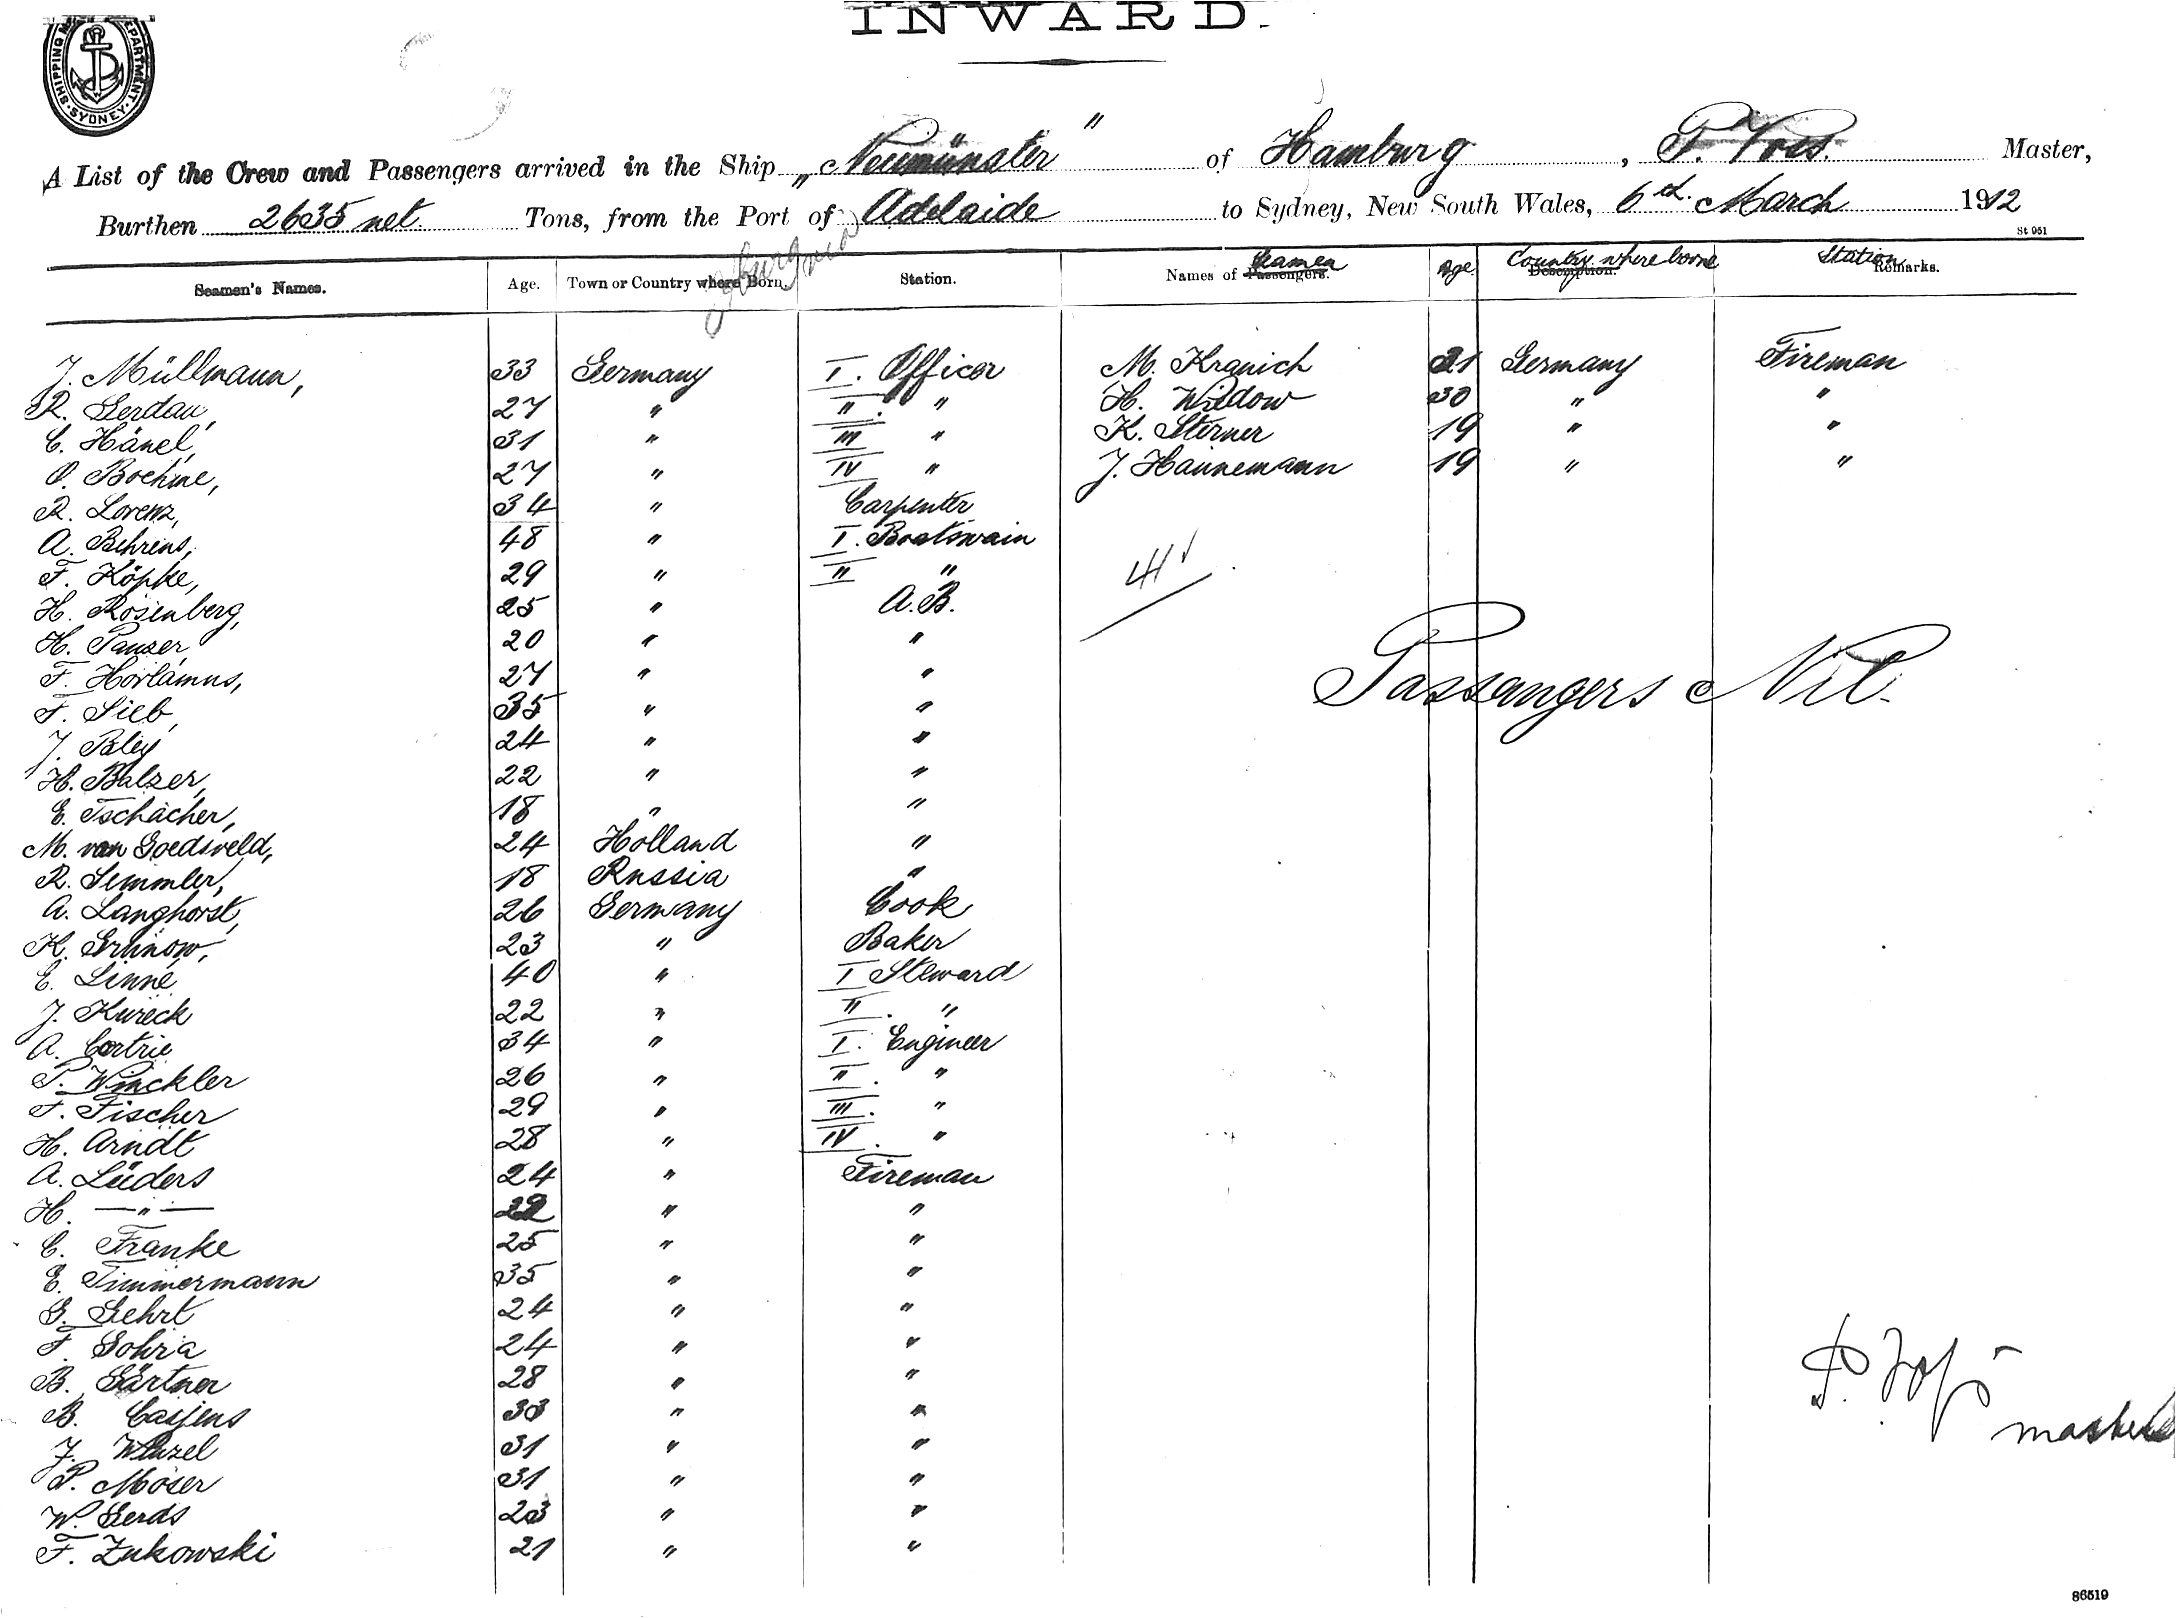 INWARD.
SHIPPING DEPARTMENT. SYDNEY.
A List of the Crew and Passengers arrived in the Ship „Neumünster" of Hamburg, P. Voss. Master,
Burthen 2635 net Tons, from the Port of Adelaide to Sydney, New South Wales, 6th March 1912
St 951
Seamen's Names. Age. Town or Country where Born. Station. Names of Passengers. Seamen Age Description. Country where born Station Remarks.
J. Müllmann, 33 Germany I. Officer M. Kranich 21 Germany Fireman
R. Gerdau, 27 " II. " H. Widow 30 " "
C. Hänel, 31 " III " K. Sterner 19 " "
O. Boehme, 27 " IV " J. Hannemann 19 " "
R. Lorenz, 34 " Carpenter
A. Behrens, 48 " I. Boatswain
F. Köpke, 29 " II "
41
H. Rosenberg, 25 " A.B.
H. Panzer, 20 " "
F. Horlamus, 27 " "
Passengers Nil.
F. Sieb, 35 " "
J. Bley 24 " "
H. Balzer, 22 " "
E. Tschacher, 18 " "
M. van Goedsveld, 24 Holland "
R. Semmler, 18 Russia "
A. Langhorst, 26 Germany Cook
K. Grünow, 23 " Baker
E. Linné 40 " I Steward
J. Kureck 22 " II. "
A. Cortrie 34 " I. Engineer
P. Winckler 26 " II. "
F. Fischer 29 " III. "
H. Arndt 28 " IV. "
A. Lüders 24 " Fireman
H. —"— 22 " "
C. Franke 25 " "
E. Timmermann 35 " "
G. Gehrt 24 " "
F. Gohra 24 " "
B. Gärtner 28 " "
B. Casjens 33 " "
P. Voß
master
J. Wenzel 31 " "
P. Moser 31 " "
W. Gerds 23 " "
F. Zukowski 21 " "
86519